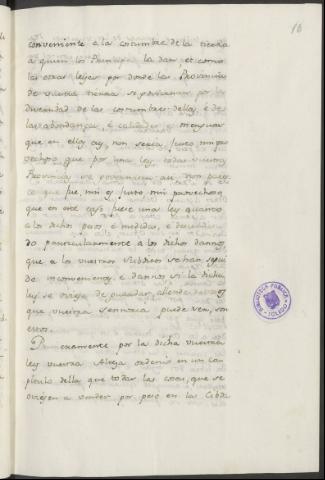 16
conveniente a la costumbre de la tierra
a quien los Principes la dan, et como
las otras leyes por donde las Provincias
de vuestra tierra se goviernan por la
diversidad de las costumbres dellas, é de
las abondanças, é calidades, é
que en ellas ay, non seria justo nin pro-
vechoso que por una ley todas vuestras
Provincias se governasen asi non pare-
ce que fue, nin es justo nin provechoso
que en este caso fuese una ley quanto
a los dichos pesos, é medidas, é
do particularmente a los dichos daños,
que a los vuestros subditos se han segui-
do inconvenientes, é daños si la dicha
ley se oviese de guardar, allende de los
que vuestra Señoria puede ver, son
estos.
Primeramente por la dicha vuestra
ley vuestra Alteza ordenó en un ca-
pitulo della que todas las cosas, que se
oviesen a vender por peso en las Cibda
BIBLIOTECA PUBLICA
TOLEDO